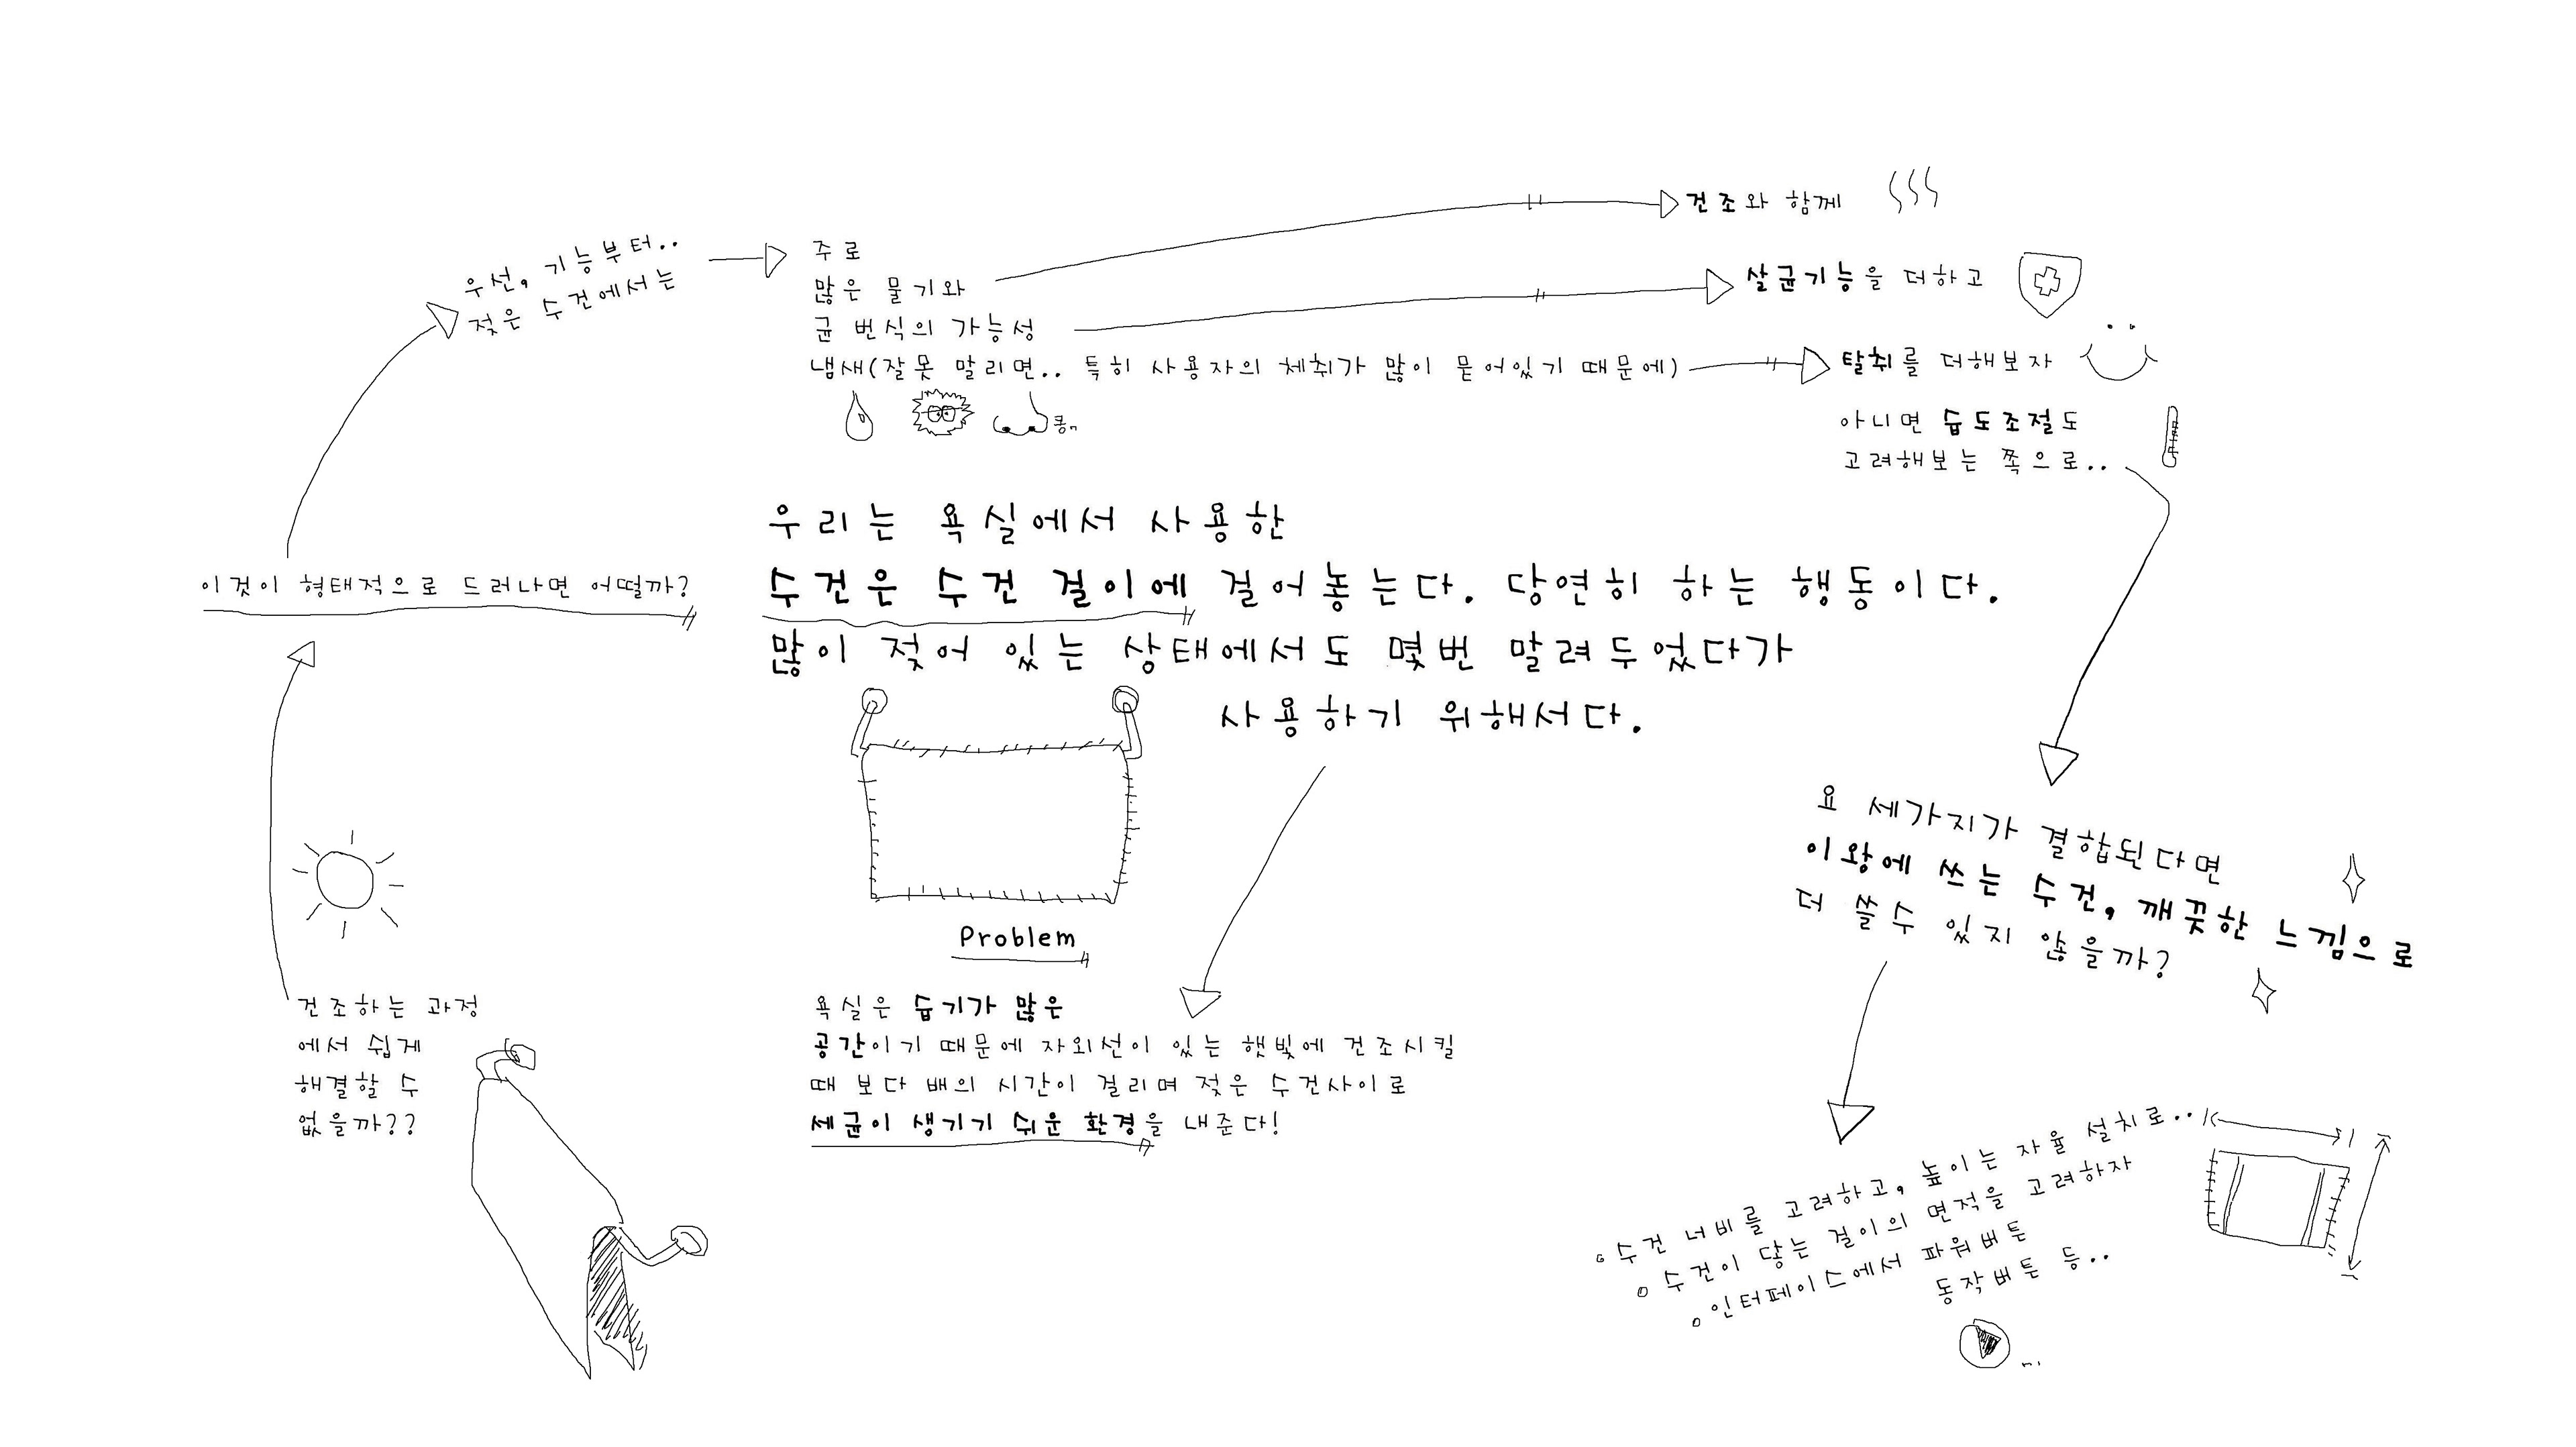 우리는 욕실에서 사용한
수건은 수건 걸이에 걸어놓는다. 당연히 하는 행동이다.
많이 젖어 있는 상태에서도 몇번 말려두었다가
사용하기 위해서다.
Problem
욕실은 습기가 많은
공간이기 때문에 자외선이 있는 햇빛에 건조시킬
때 보다 배의 시간이 걸리며 젖은 수건사이로
세균이 생기기 쉬운 환경을 내준다!
건조하는 과정
에서 쉽게
해결할 수
없을까??
이것이 형태적으로 드러나면 어떨까?
우선, 기능부터..
젖은 수건에서는
주로
많은 물기와
균 번식의 가능성
냄새(잘못 말리면.. 특히 사용자의 체취가 많이 묻어있기 때문에)
건조와 함께
살균기능을 더하고
탈취를 더해보자
아니면 습도조절도
고려해보는 쪽으로..
요 세가지가 결합된다면
이왕에 쓰는 수건, 깨끗한 느낌으로
더 쓸수 있지 않을까?
수건 너비를 고려하고, 높이는 자율 설치로..
수건이 닿는 걸이의 면적을 고려하자
인터페이스에서 파워버튼
동작버튼 등..